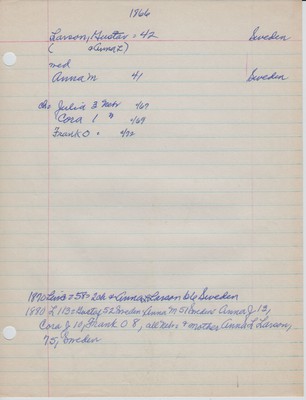 1966
Larson, Gustav - 42 Sweden
( & Anna L)
wed
Anna M 41 Sweden
chs Julia 3 Nebr 4/67
Cora 1 " 4/69
Frank O " 4/72
2ch & Anna Larson b by Sweden
Gustav 52 Sweden Anna M 51 Sweden Anna J 13,
Cora J 10, Frank O 8, all Nebr. & mother Anna L Larson,
75, Sweden